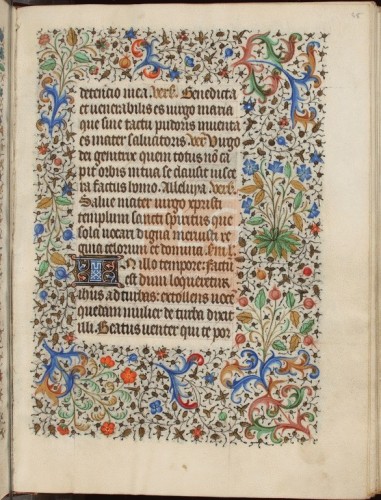 detencio mea. Vers. Benedicta
et venerabilis es virgo maria
que sine tactu pudoris inventa
es mater salvatoris Vers Virgo
dei genitrix quem totus no ca
pit orbis in tua se clausit visce
ra factus homo. Alleluya. Vers.
Salve mater virgo xpristi
templum sancti spiritus que
sola vocari digna meruisti re
gina celorum et domina.
In illo tempore. Factu
est dum loqueretur
ihus ad turbas: extollens voce
quedam mulier de turba dixit
illi. Beatus venter qui te por